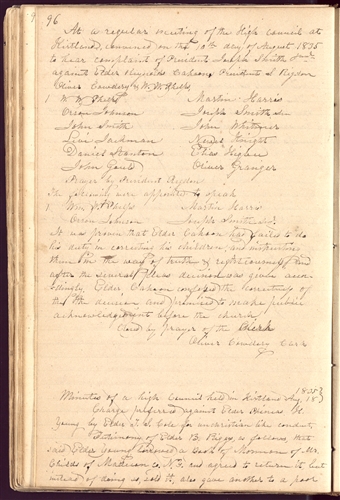 96
At a regular meeting of the High council at
Kirtland, convened on the 10th day of August 1835
to hear complaint of President Joseph Smith Junr
against Elder Reynolds Cahoon, Presidents S. Rigdon
Oliver Cowdery & W. W. Phelps
1 W W Phelps Martin Harris
Orson Johnson Joseph Smith sen
John Smith John Whitmer
Levi Jackman Newel Knight
Daniel Stanton Elias Higbee
John Gould Oliver Granger
Prayer by President Rigdon
The following were appointed to speak
1. Wm W Phelps Martin Harris
Orson Johnson Joseph Smith sen
It was proven that Elder Cahoon had failed to do
his duty in correcting his children, and instructing
them in the way of truth & righteousness; and
after the several pleas decision was given accor-
dingly. Elder Cahoon confessed the correctness of
the decision and promised to make public
acknowledgements before the church
Closed by prayer of the Clerk
Oliver Cowdery Clerk
Minutes of a high Council held in Kirtland Aug. 18 1835
Charge preferred against Elder Henry H.
Young by Elder Z. S. Cole for unchristian like conduct.
Testimony of Elder B. Riggs as follows, that
said Elder Young borrowed a Book of Mormon of Mr.
Childs of Madison Co. N.Y. and agreed to return it but
instead of doing so, sold it, also gave another to a poor